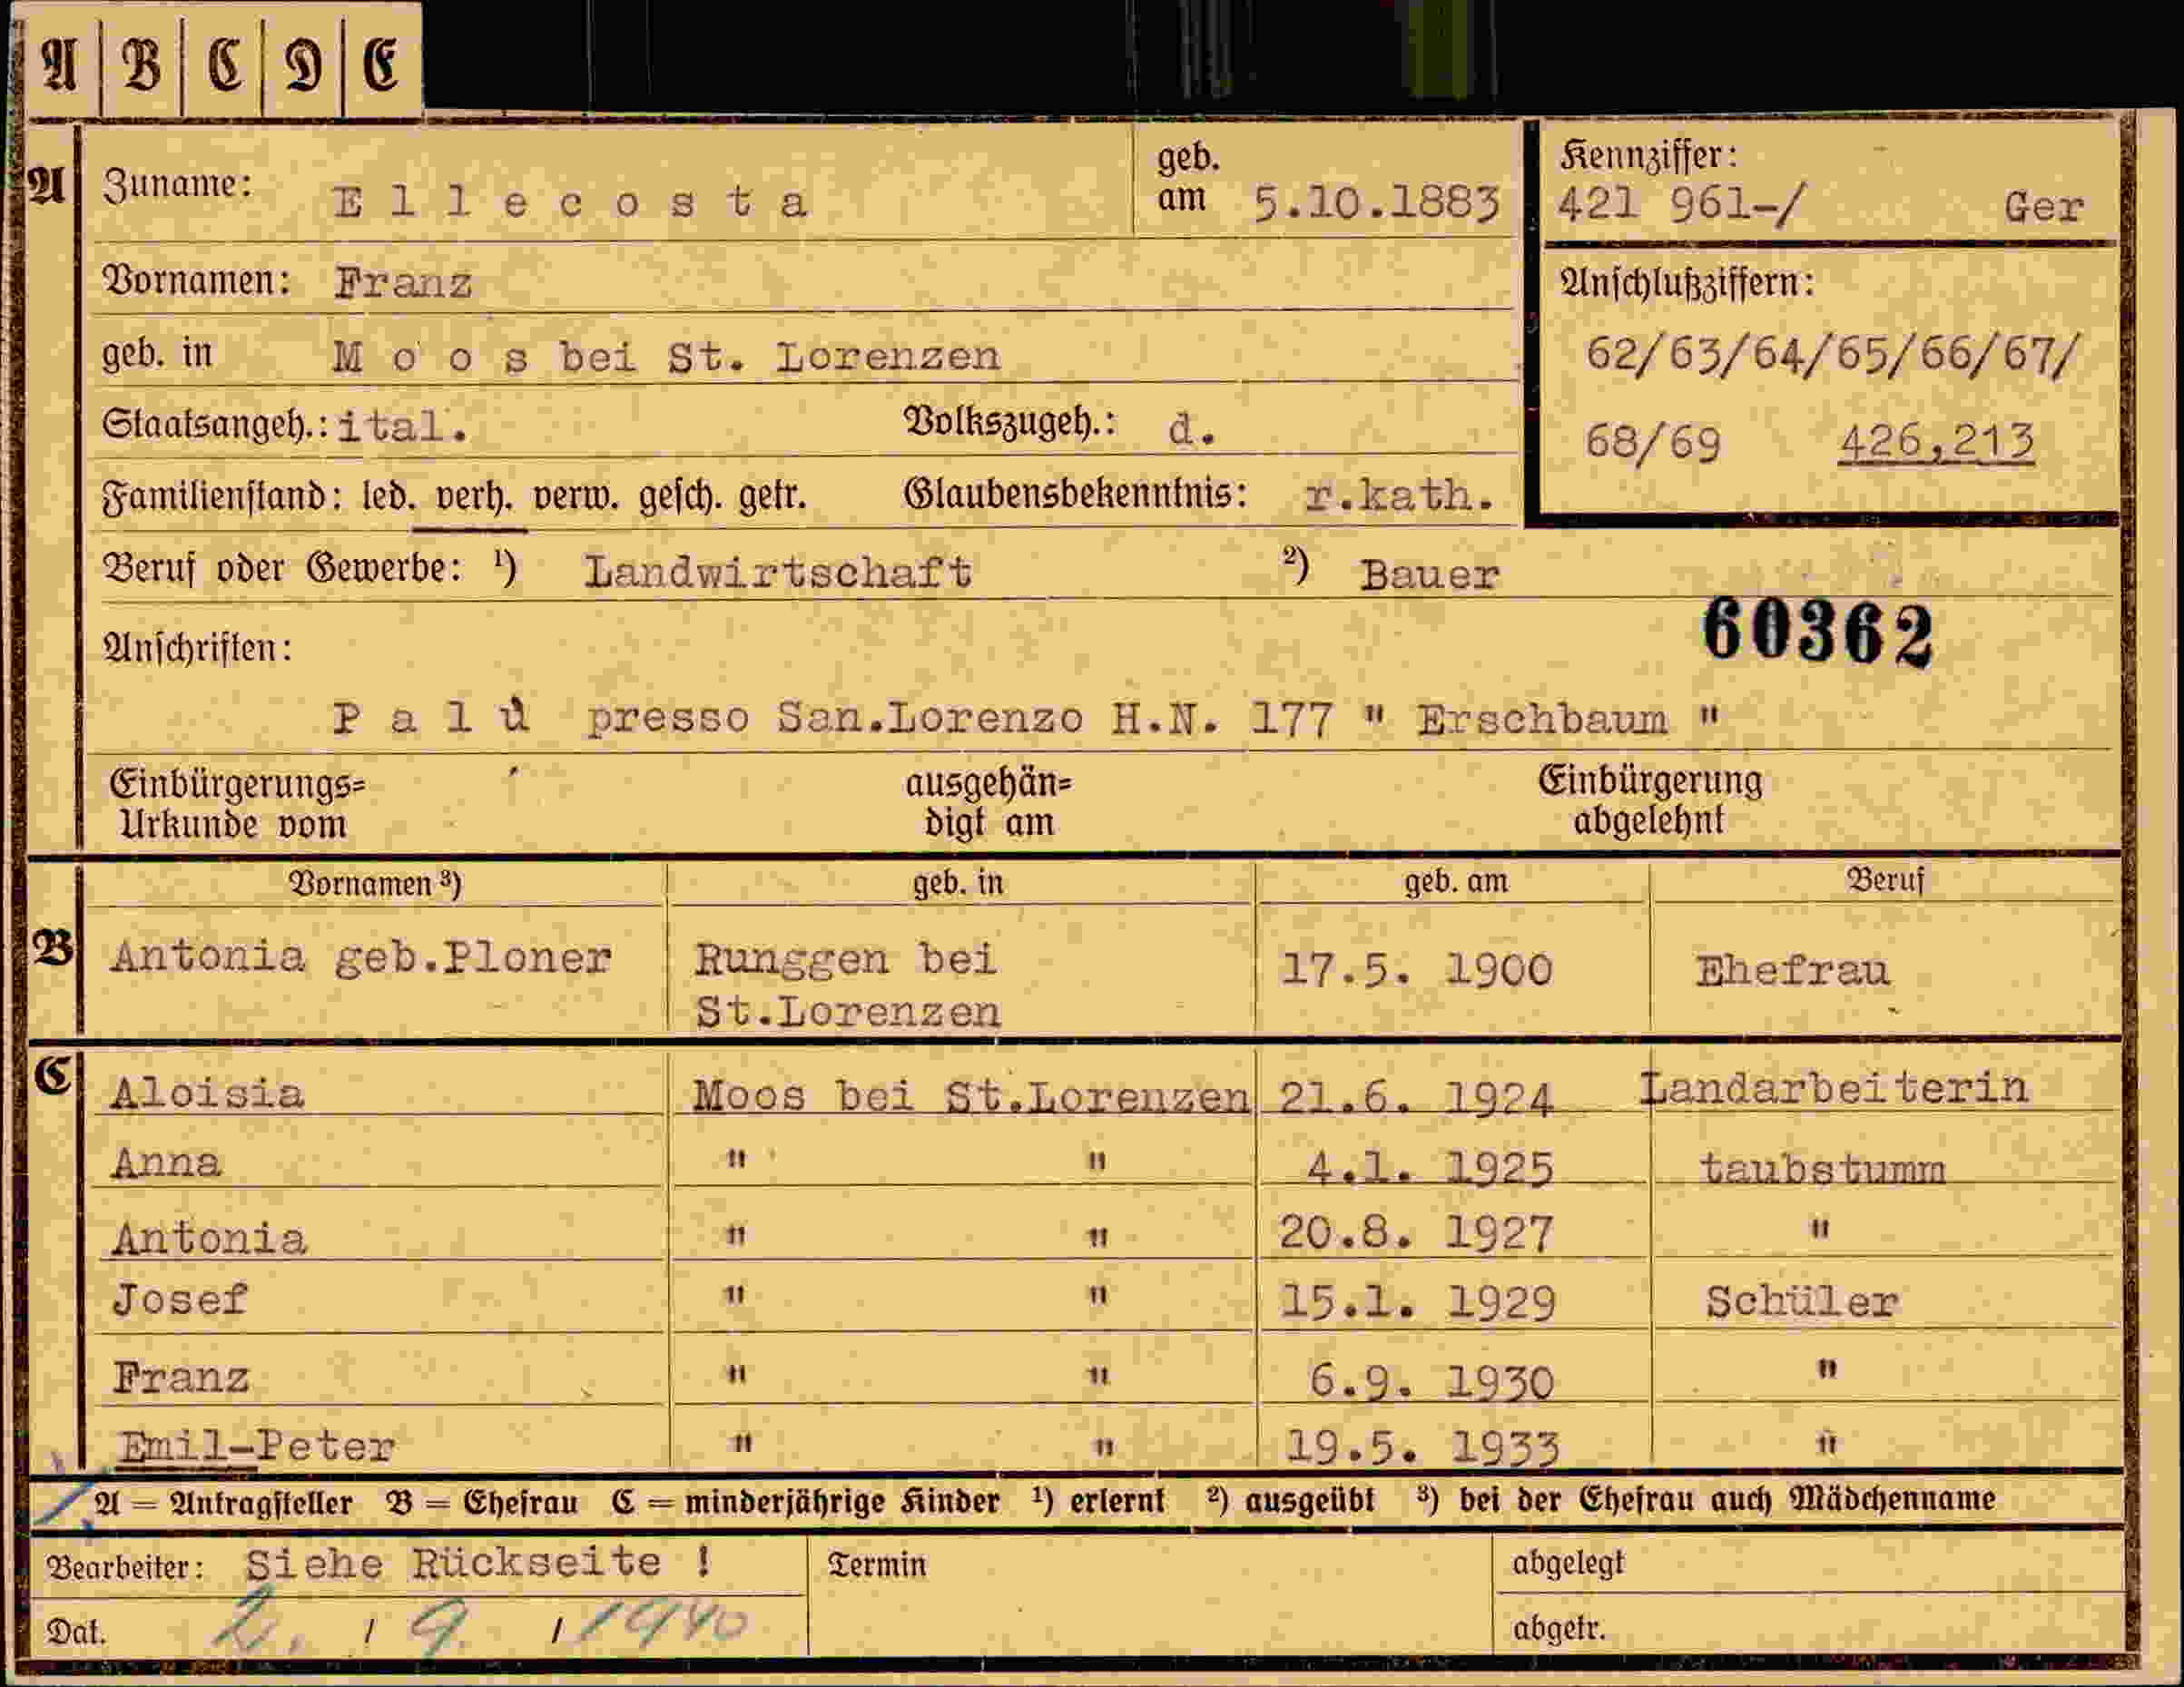 A B C D E
A Zuname: Ellecosta geb. am 5.10.1883 Kennziffer: 421 961-/ Ger
Vornamen: Franz Anschlußziffern:
geb. in Moos bei St. Lorenzen 62/63/64/65/66/67/
Staatsangeh.: ital. Volkszugeh.: d. 68/69 426,213
Familienstand: led. verh. verw. gesch. getr. Glaubensbekenntnis: r.kath.
Beruf oder Gewerbe: ¹) Landwirtschaft ²) Bauer
60362
Anschriften:
Palù presso San.Lorenzo H.N. 177 " Erschbaum "
Einbürgerungs= ausgehän= Einbürgerung
Urkunde vom digt am abgelehnt
Vornamen ³) geb. in geb. am Beruf
B Antonia geb.Ploner Runggen bei 17.5. 1900 Ehefrau
St.Lorenzen
C Aloisia Moos bei St.Lorenzen 21.6. 1924 Landarbeiterin
Anna " " 4.1. 1925 taubstumm
Antonia " " 20.8. 1927 "
Josef " " 15.1. 1929 Schüler
Franz " " 6.9. 1930 "
Emil-Peter " " 19.5. 1933 "
A = Antragsteller B = Ehefrau C = minderjährige Kinder ¹) erlernt ²) ausgeübt ³) bei der Ehefrau auch Mädchenname
Bearbeiter: Siehe Rückseite ! Termin abgelegt
Dat. 2. / 9. / 1940 abgetr.